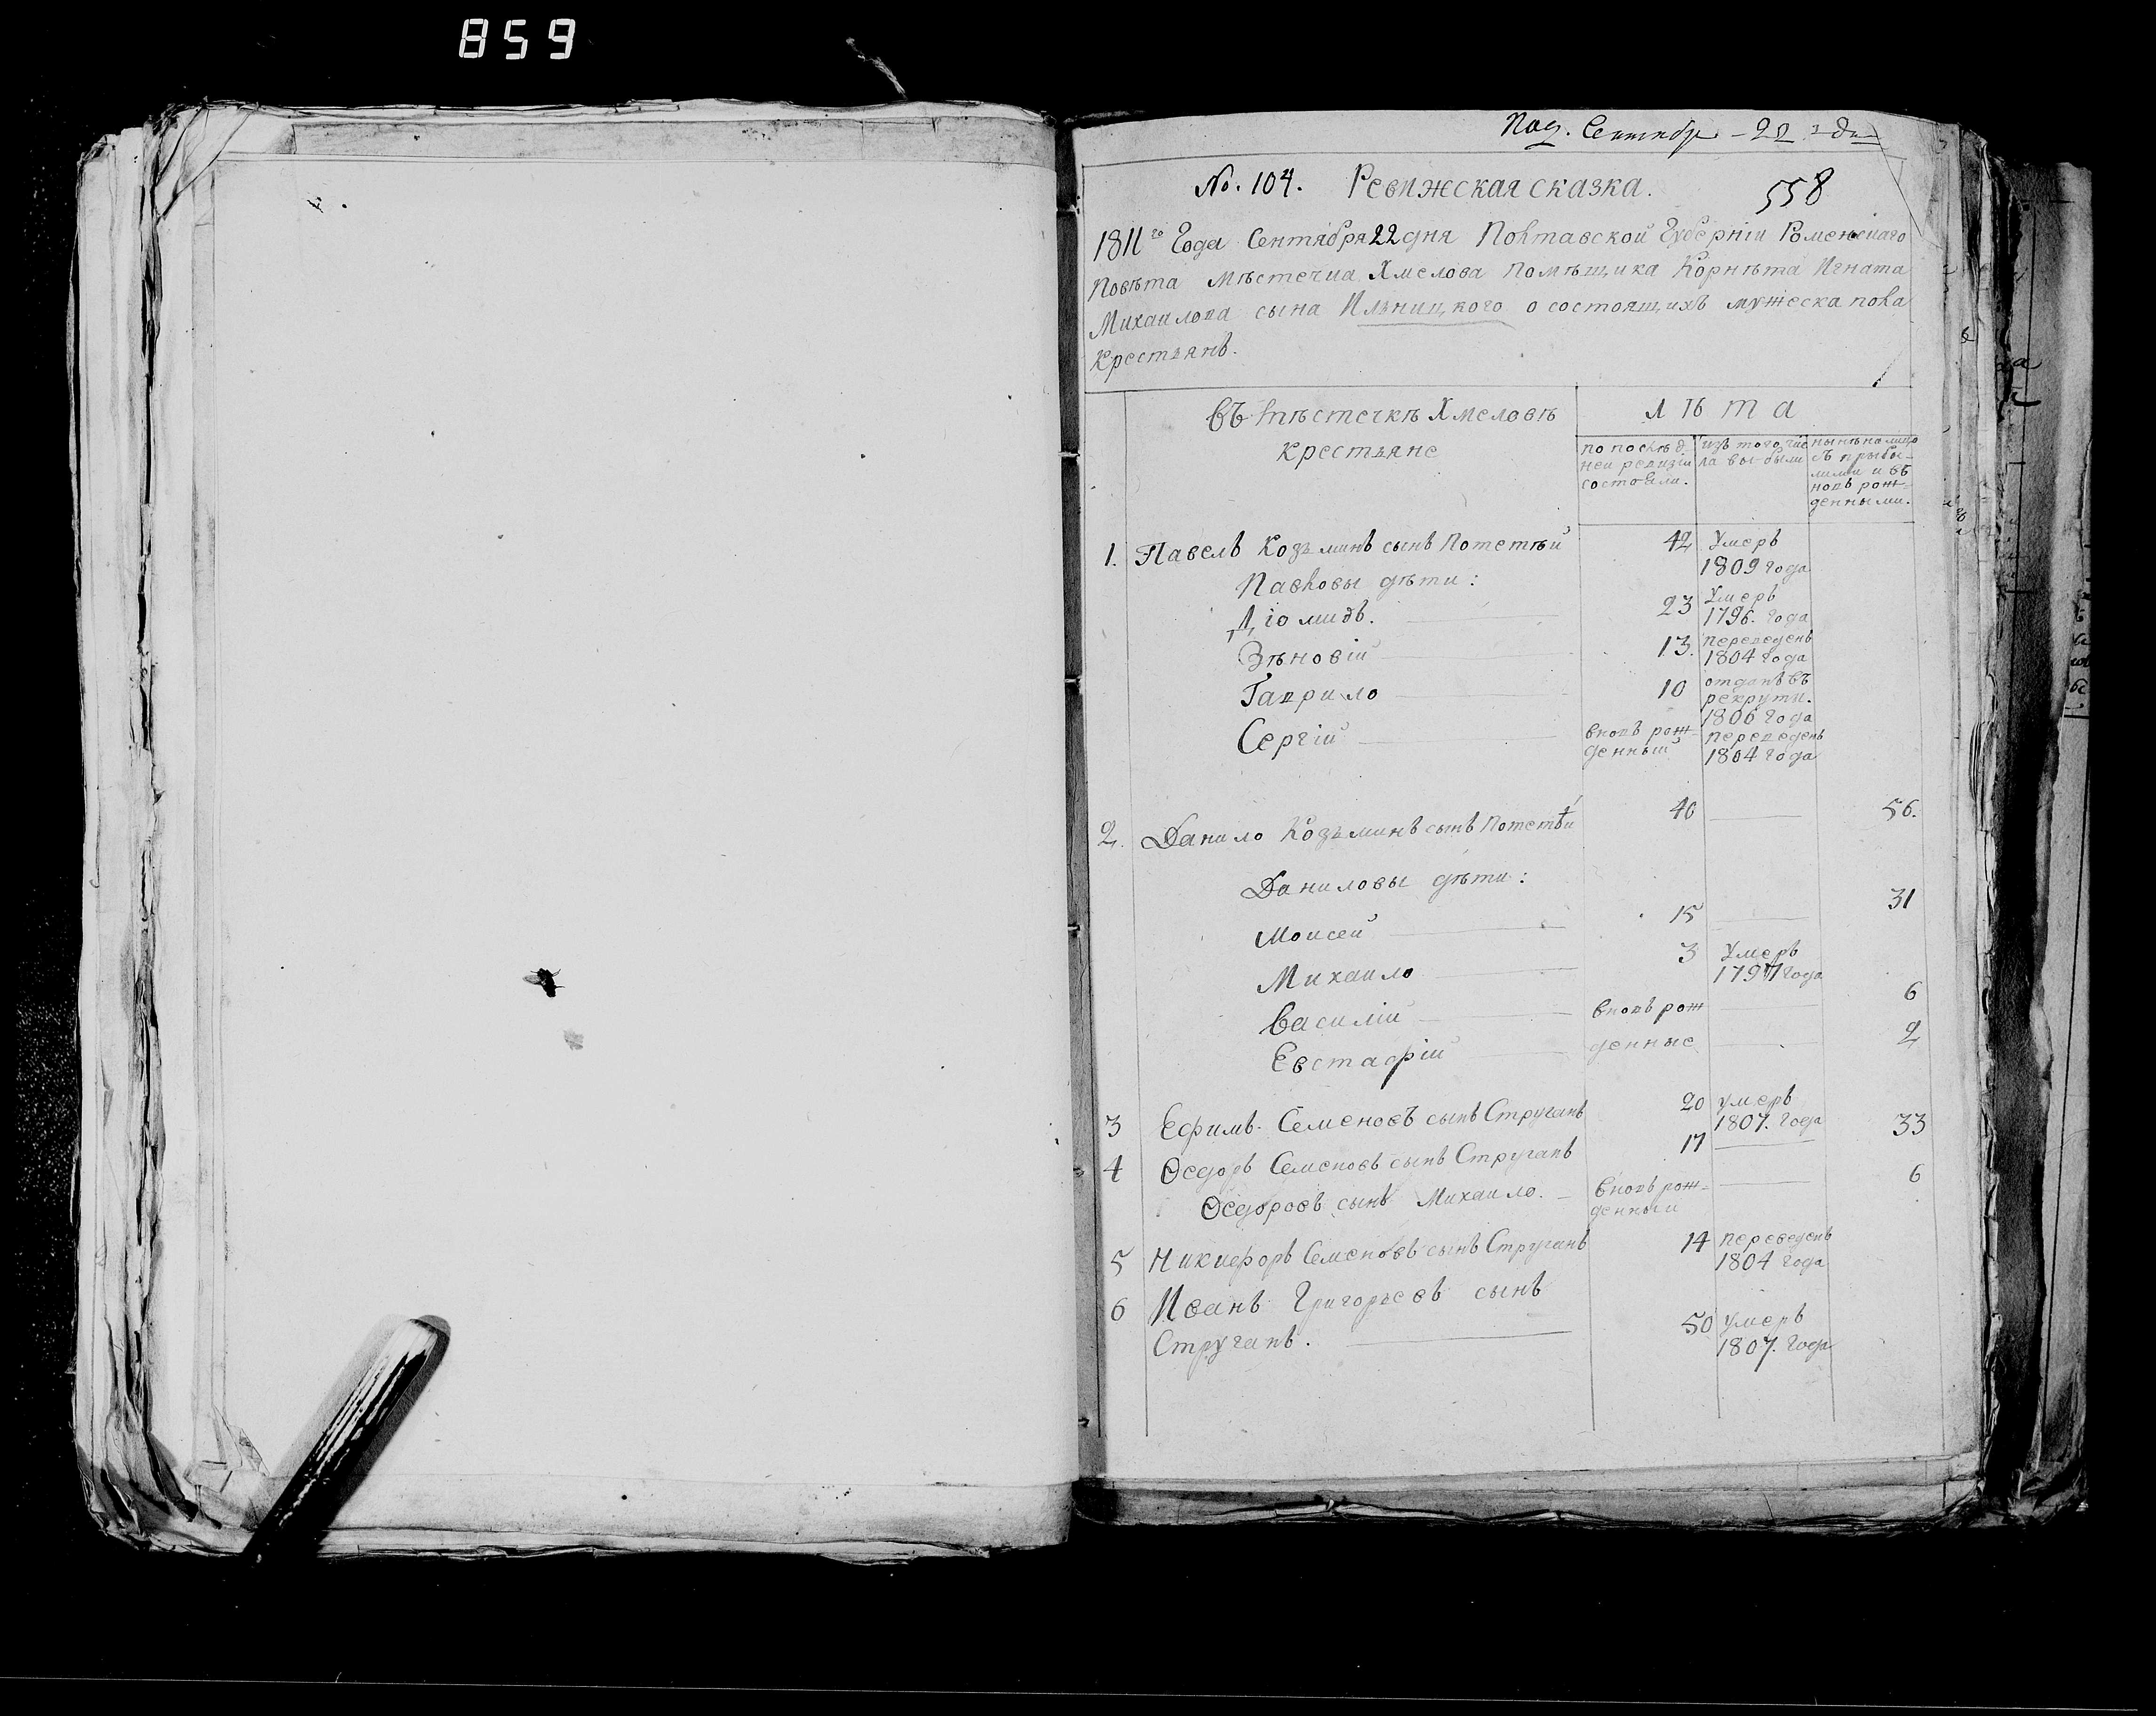 859
Сентябр - 22
No. 104. Ревижская сказка. 558
1811го Года Сентября 22 дня Полтавской Губерніи Роменскаго
Повѣта мѣстечка Хмелова помѣщика Корнѣта Игната
Михаилова сына Ильницкого о состоящихъ мужеска пола
крестьянѣ.
въ мѣстечкѣ Хмеловѣ
крестьяне
Лѣта
по послѣд
ней ревизіи
состояли.
изъ того чис
ла вы-были
нынѣ на лицо
съ прыбы-
лими и въ
новъ рож-
денными.
1. Павелъ Козьминъ сынъ Потетѣй 42 Умеръ
1809 года
Павловы дѣти:
Діомидъ. 23 Умеръ
1796. года
Зѣновій 13. переведенъ
1804 года
Гаврило 10 отданъ въ
рекруты.
1806 года
Сергій вновь рож-
денный переведенъ
1804 года
2. Данило Козьминъ сынъ Потетѣй 40 56.
Даниловы дѣти:
Моисей 15 31
Михаило 3 Умеръ
1797 года
Василій вновь рож 6
Евстафій денные 2
3 Ефимъ Семеновъ сынъ Струганъ 20 умеръ
1807. года
4 Ѳедоръ Семеновъ сынъ Струганъ 17 33
Ѳедоровъ сынъ Михаило. вновь рож-
денный 6
5 Никифоръ Семеновъ сынъ Струганъ 14 переведенъ
1804 года
6 Иванъ Григорьевъ сынъ
Струганъ. 50 умеръ
1807. года